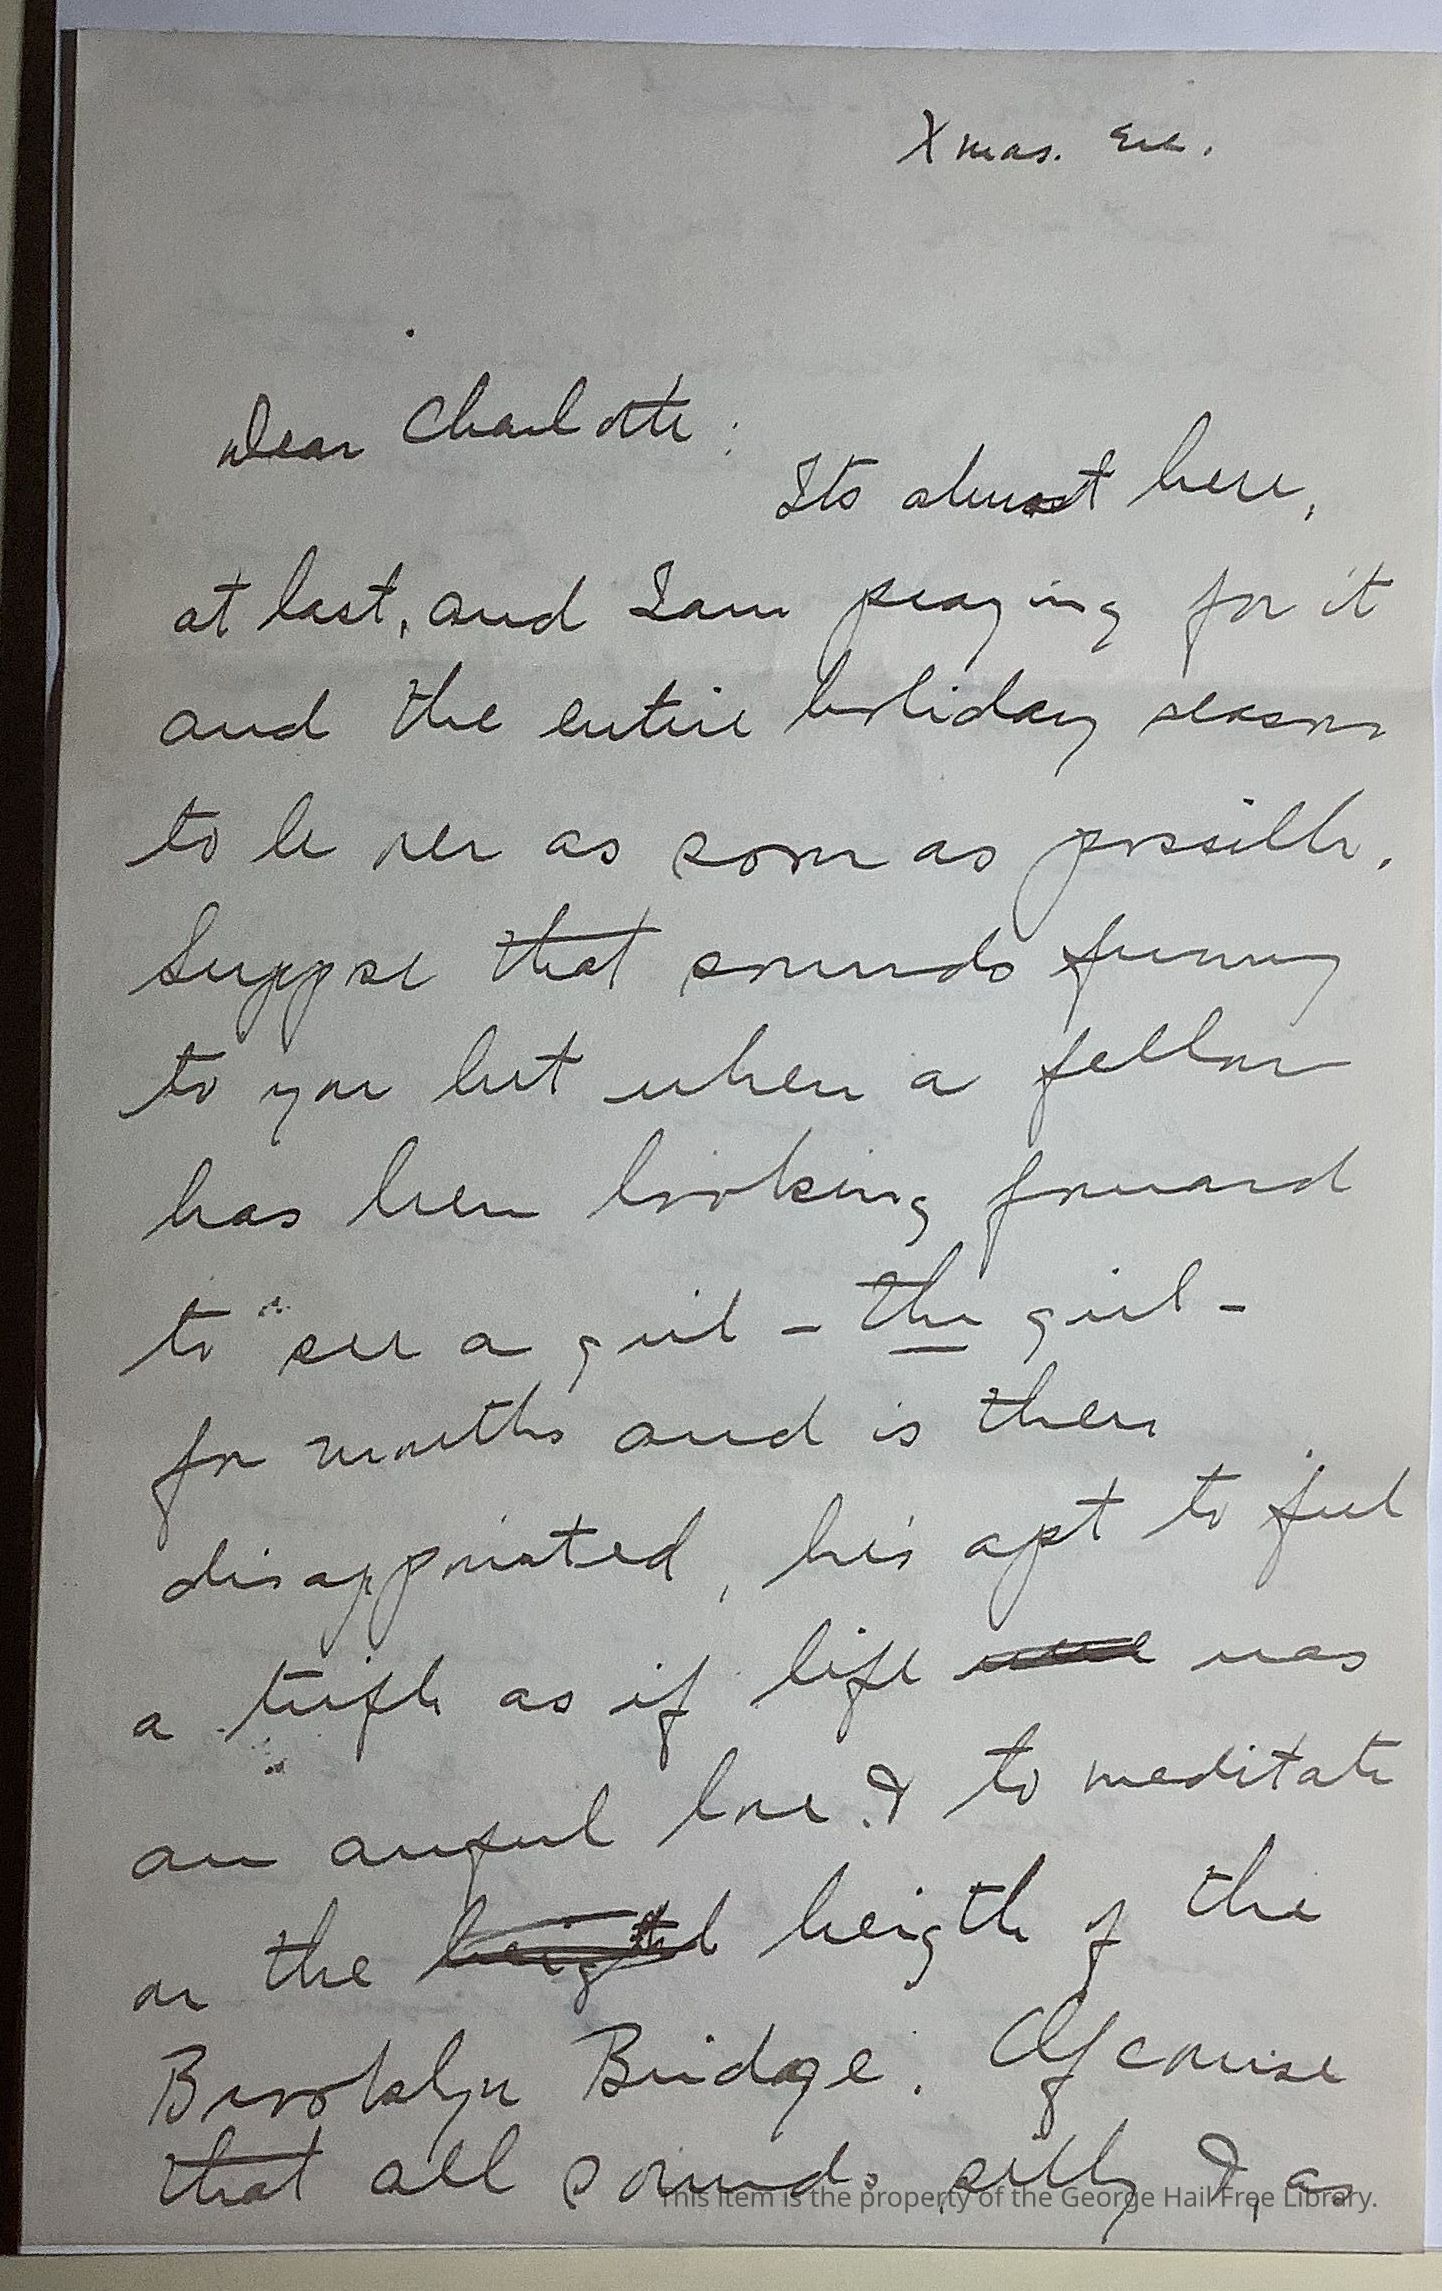 Xmas. Eve.
Dear Charlotte:
Its almost here,
at last, and I am praying for it
and the entire holiday season
to be over as soon as possible.
Suppose that sounds funny
to you but when a fellow
has been looking forward
to see a girl - the girl -
for months and is then
disappointed, he's apt to feel
a trifle as if life was
an awful bore. & to meditate
on the heigth of the
Brooklyn Bridge. Of course
that all sounds silly &, as
This item is the property of the George Hail Free Library.